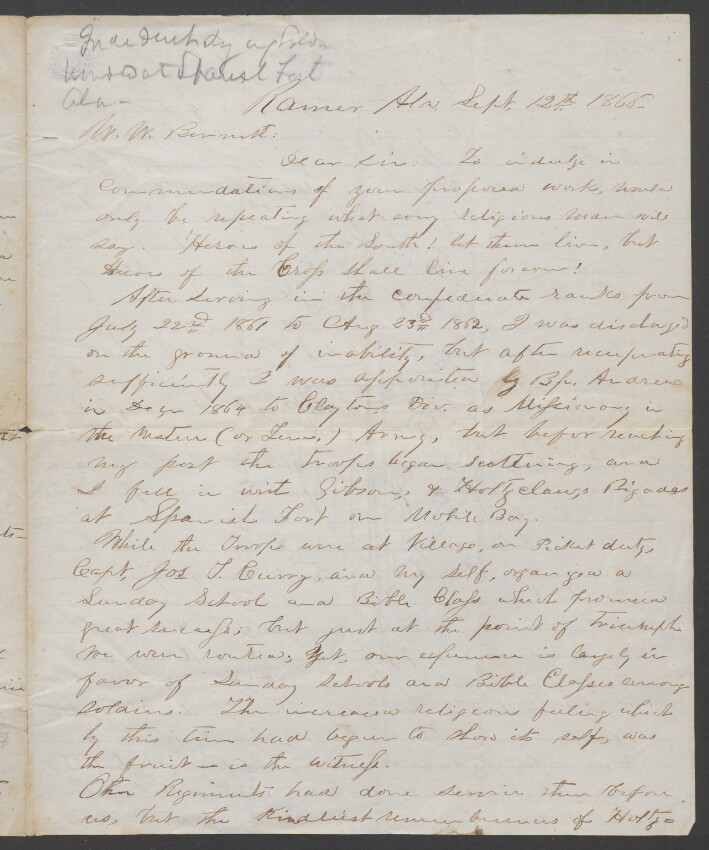 Ramer Ala. Sept. 12th 1866
W. W. Bennett:
Dear Sir: To indulge in
commendations of your proposed work, would
only be repeating what any religious man will
say. Heroes of the South! let them live, but
Heroes of the Cross shall live forever!
After serving in the confederate ranks from
July 22nd 1861 to Aug 23d 1862, I was discharg'd
on the ground of inability, but after recuperating
sufficiently I was appointed by Bp. Andrew
in 1864 to Claytons Div. as Missionary in
the Western (or Tenn.) Army, but befor reaching
my post the troops began scattering, and
I fell in with Gibsons, & Holtzclaws Brigades
at Spanish Fort on Mobile Bay.
While the Troops were at Village, on Picket duty,
Capt. Jos. T. Curry, and my self, organized a
Sunday School and Bible Class which promised
great success; but just at the point of triumph
we were routed; Yet, our experience is largely in
favor of Sunday schools and Bible Classes among
soldiers. The increased religious feeling which
by this time had begun to show its self, was
the fruit - is the witness.
Other Regiments had done service there before
us, but the kindliest remembrances of Holtz=